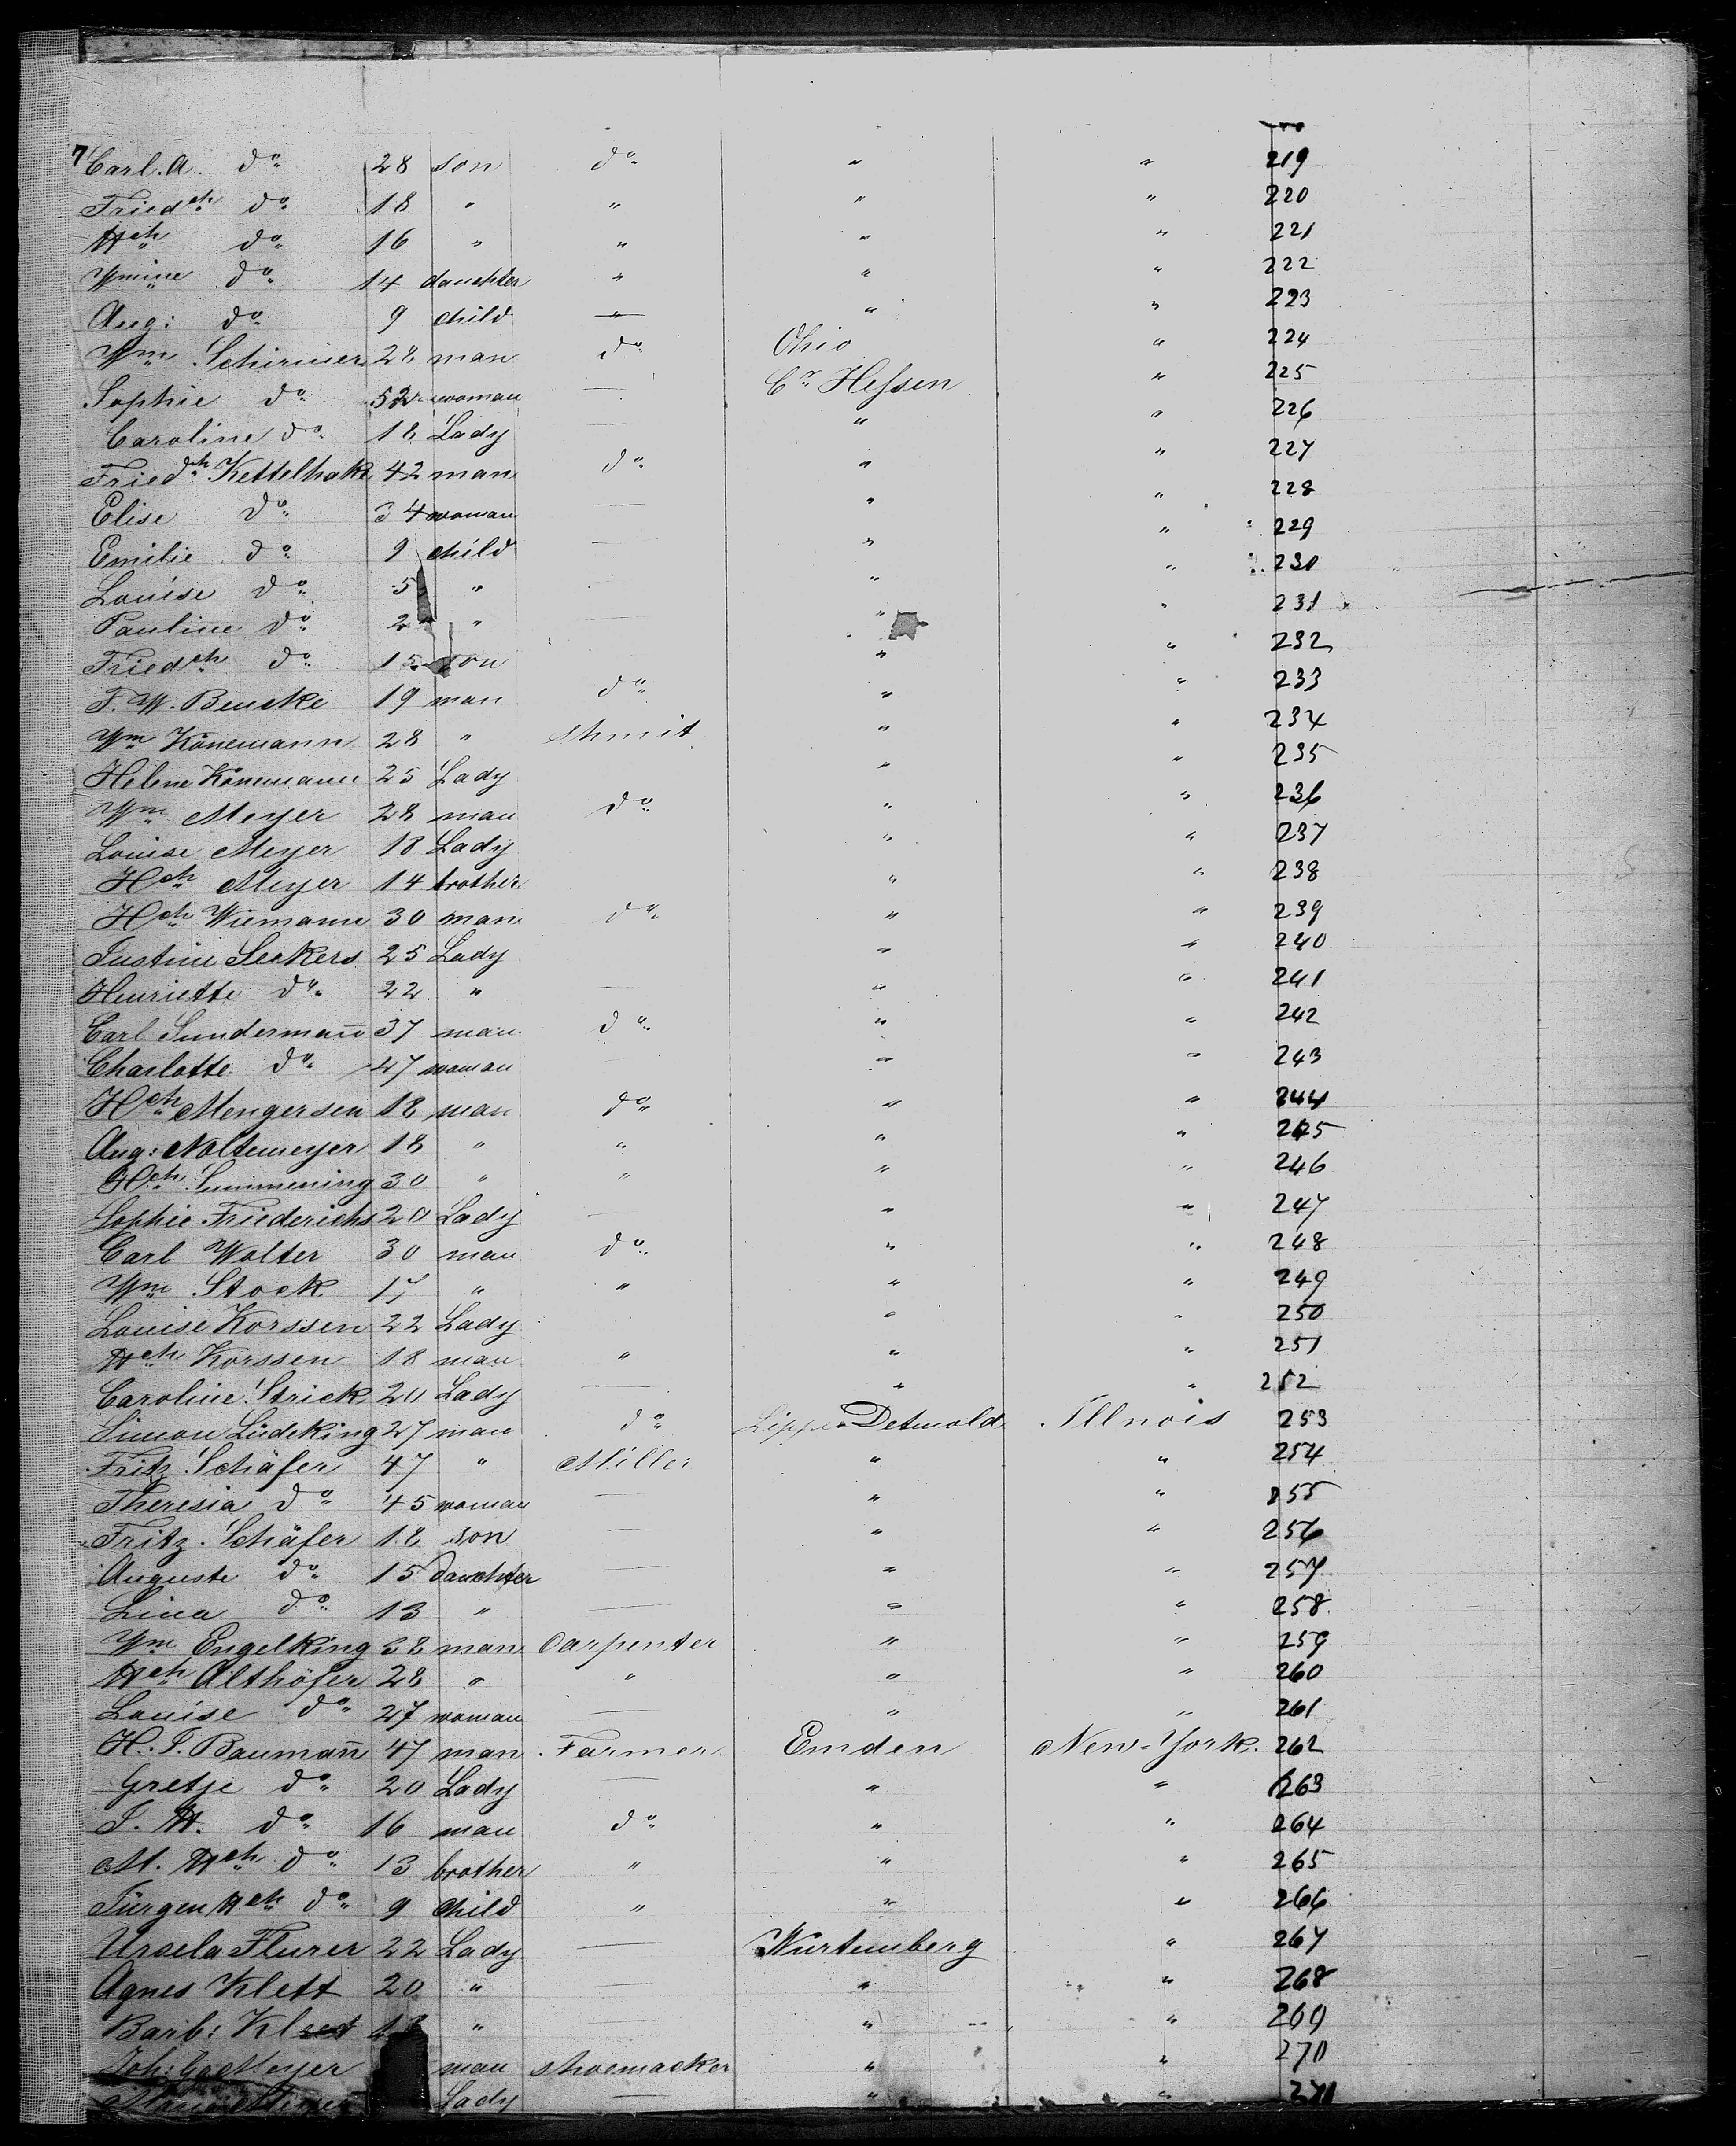 7 Carl. A. do 28 son do " " 219
Friedch do 18 " " " " 220
Hch do 16 " " " " 221
Wmine do 14 dauchter " " " 222
Aug: do 9 child — " " 223
Wm Schirmer 28 man do Ohio " 224
Sophie do 52 woman — Cr Hessen " 225
Caroline do 18 Lady " " 226
Friedch Kettelhake 42 man do " " 227
Elise do 34 woman — " " 228
Emilie do 9 child — " " 229
Louise do 5 " " " 230
Pauline do 2 " — " " 231
Friedch do 15 son " " 232
F. W. Bencke 19 man do " " 233
Wm Könemann 28 " shmit " " 234
Helene Könemann 25 Lady " " 235
Wm Meyer 28 man do " " 236
Louise Meyer 18 Lady " " 237
Hch Meyer 14 brother " " 238
Hch Wiemann 30 man do " " 239
Justine Seekers 25 Lady " " 240
Henriette do 22 " — " " 241
Carl Sundermann 37 man do " " 242
Charlotte do 47 woman — " " 243
Hch Mengersen 18 man do " " 244
Aug: Noltemeyer 18 " " " " 245
Hch Summening 30 " " " " 246
Sophie Friederichs 20 Lady — " " 247
Carl Wolter 30 man do " " 248
Wm Stock 17 " " " " 249
Louise Korssen 22 Lady " " 250
Hch Korssen 18 man " " " 251
Caroline Strick 20 Lady — " " 252
Simon Lüdeking 27 man do Lippe Detmold Illnois 253
Fritz Schäfer 47 " Miller " " 254
Theresia do 45 woman — " " 255
Fritz. Schäfer 18 son — " " 256
Auguste do 15 dauchter — " " 257
Lina do 13 " — " " 258
Wm Engelking 38 man carpenter " " 259
Hch Althöfer 28 " " " " 260
Louise do 27 woman — " " 261
H. J. Baumann 47 man Farmer Emden New-York. 262
Gretje do 20 Lady — " " 263
J. H. do 16 man do " " 264
M. Hch do 13 brother " " " 265
Jürgen Hch do 9 child " " " 266
Ursela Flurer 22 Lady — Würtemberg " 267
Agnes Klett 20 " — " " 268
Barb: " — " " 269
Joh: Meyer man shoemacker " " 270
Lady — " " 271